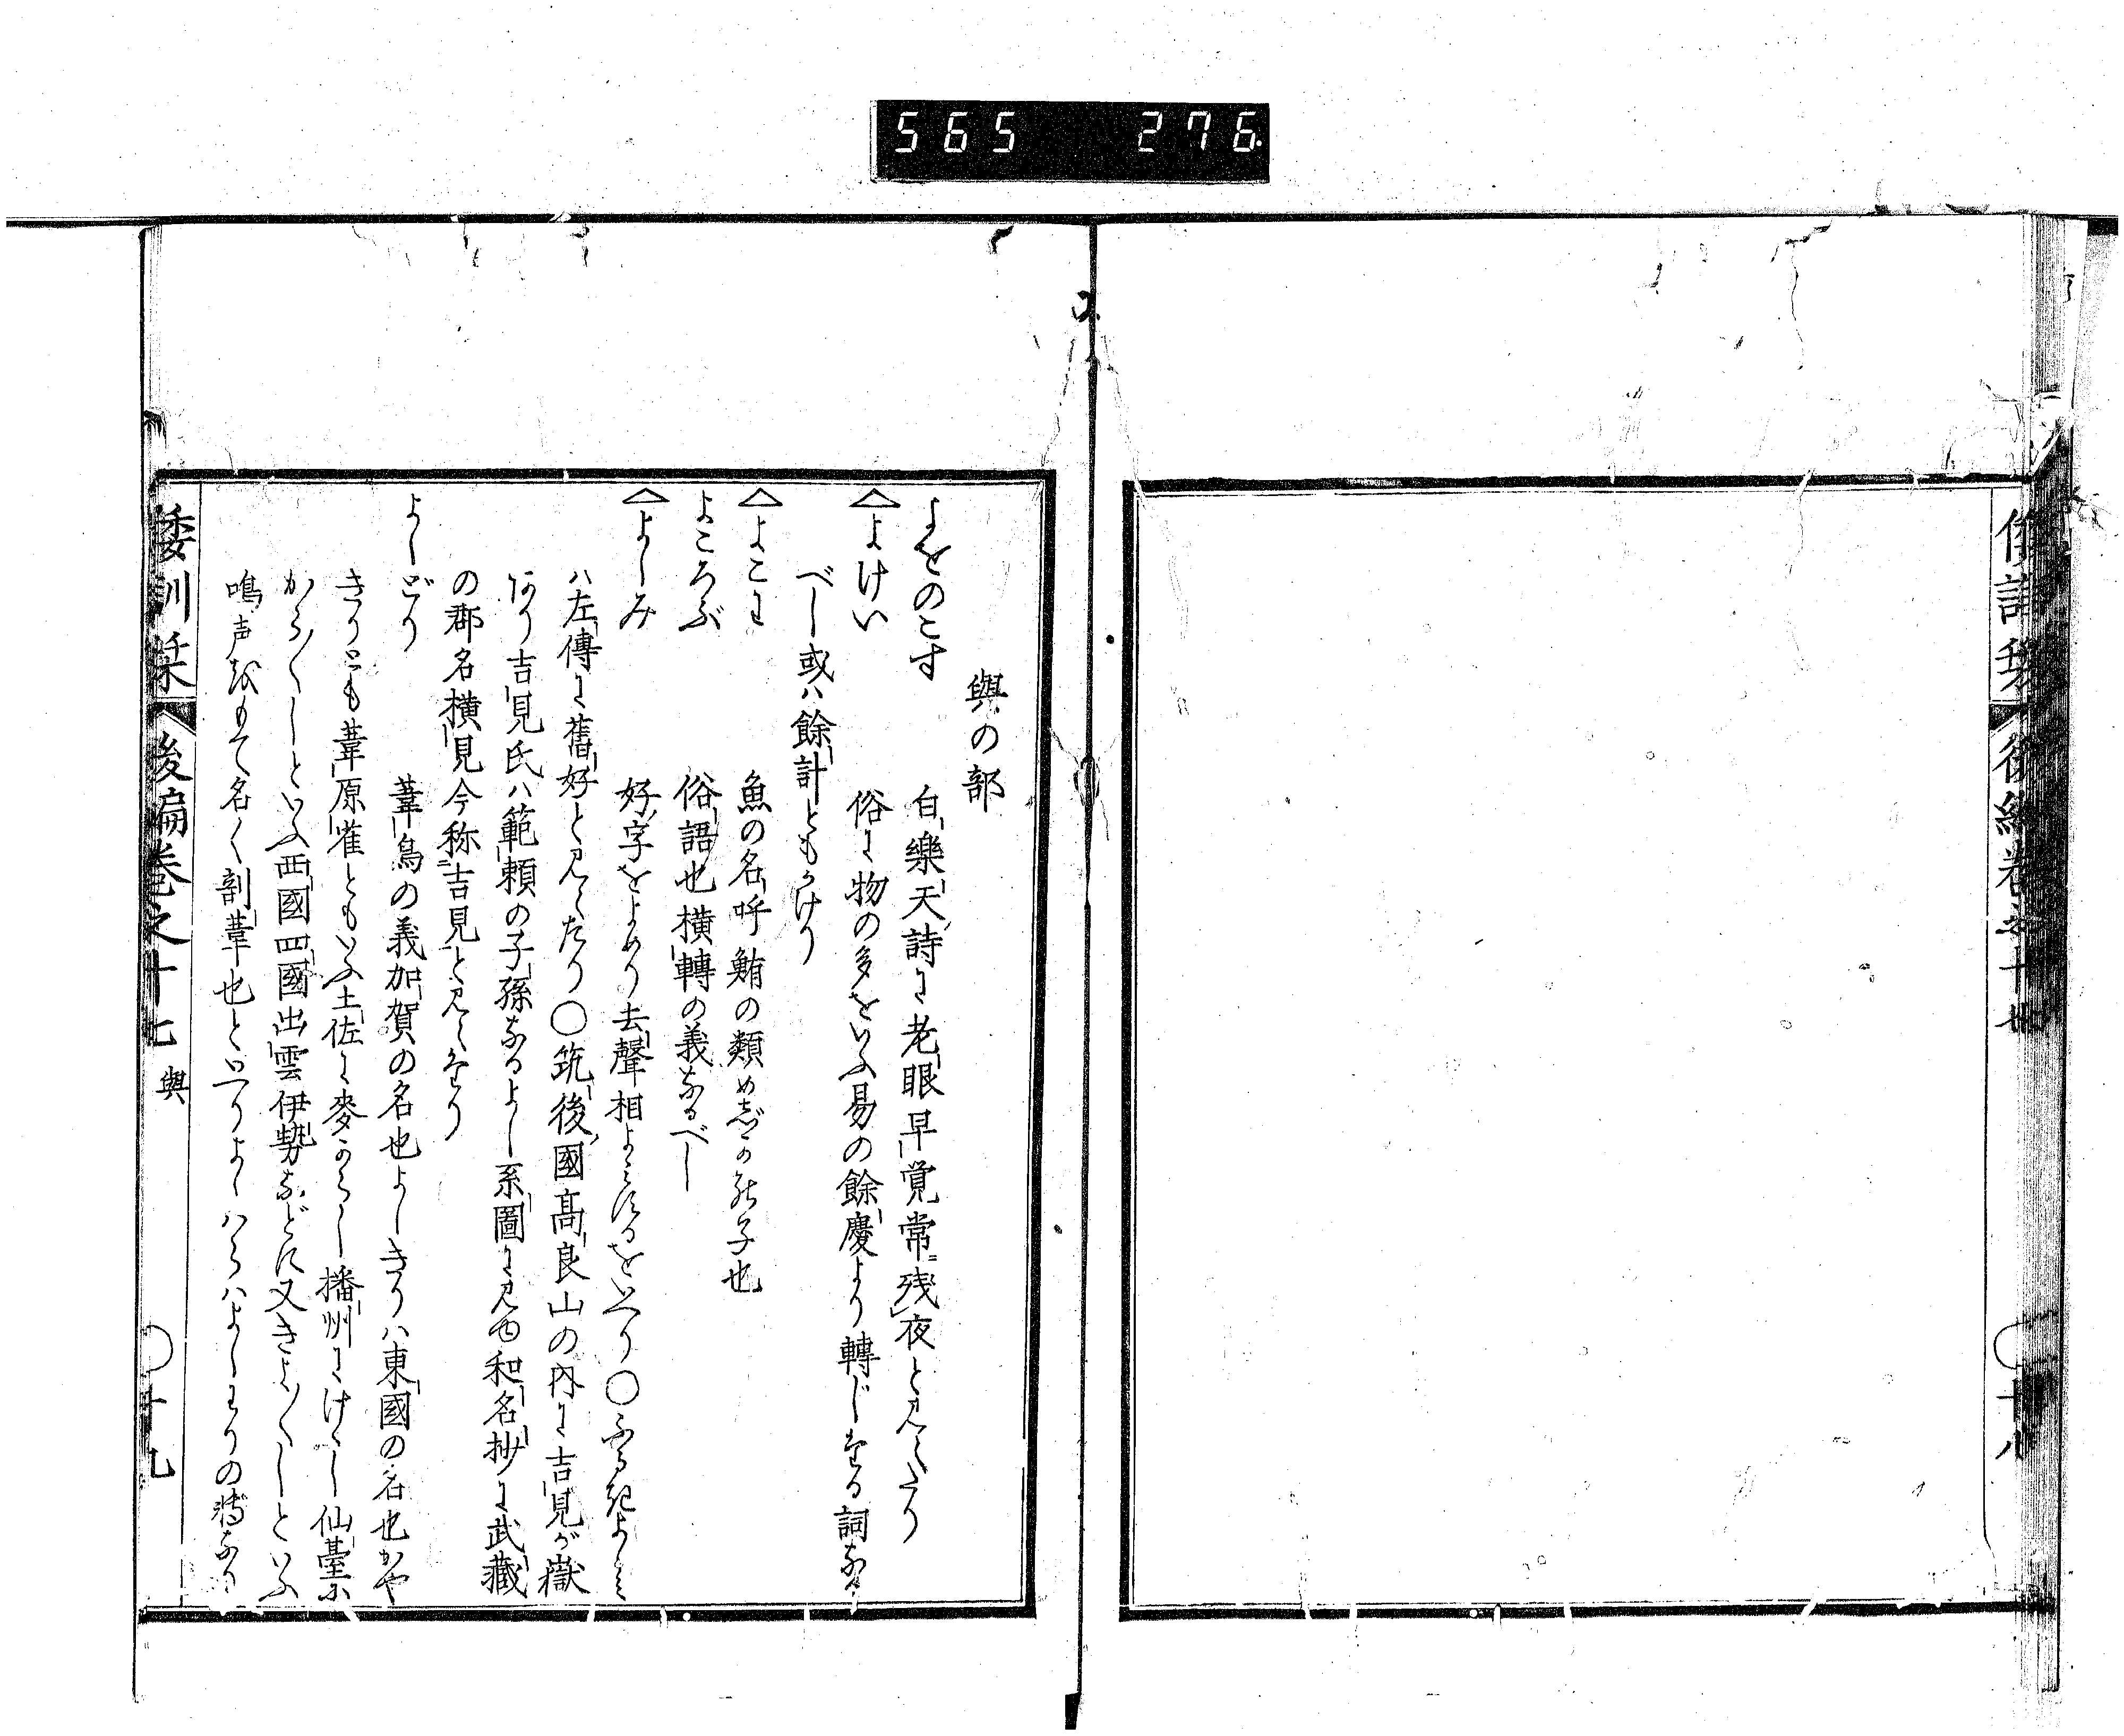 565 276
倭訓栞 後編巻之十七 十八
與の部
よをのこす 白樂天詩に老眼早覚常残夜と見えたり
△よけい 俗に物の多をいふ易の餘慶より轉じたる詞なる
べし或ハ餘計ともかけり
△よこわ 魚の名呼鮪の類めじか能子也
よころぶ 俗語也横轉の義なるべし
△よしみ 好字をよめり去聲相よみするをいへり○ふるきよしミ
ハ左傳に舊好と見えたり○筑後國髙良山の内に吉見が嶽
あり吉見氏ハ範頼の子孫なるよし系圖に見ゆ和名抄に武藏
の郡名横見今称吉見と見えたり
よしどり 葦鳥の義加賀の名也よしきりハ東國の名也かや
きりとも葦原雀ともいふ土佐に麥からし播州にけゝし仙臺に
からからしといふ西國四國出雲伊勢などに又きよきよしといふ
鳴声をもて名く割葦也といへりよしハらハよしわりの轉なり
倭訓栞 後編巻之十七 與 十九